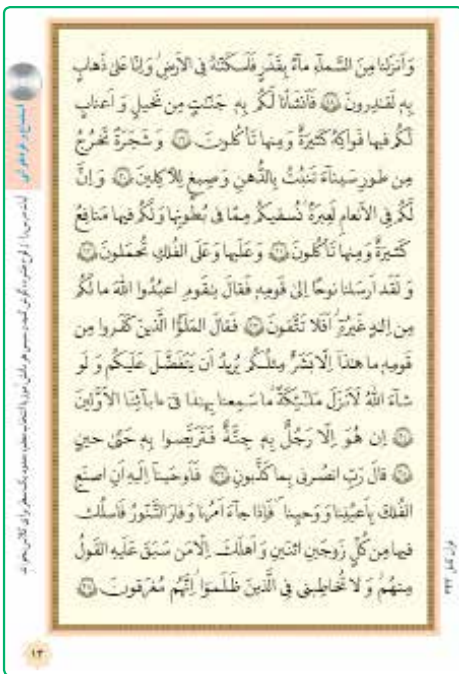 وَ أَنزَلنا مِنَ السَّماءِ ماءً بِقَدَرٍ فَأَسكَنّاهُ فِی الأَرضِ وَ إِنّا عَلیٰ ذَهابٍ
بِهِ لَقادِرونَ ١٨ فَأَنشَأنا لَكُم بِهِ جَنّاتٍ مِن نَخیلٍ وَ أَعنابٍ
لَكُم فیها فَواكِهُ كَثیرَةٌ وَ مِنها تَأكُلونَ ١٩ وَ شَجَرَةً تَخرُجُ
مِن طورِ سَیناءَ تَنبُتُ بِالدُّهنِ وَ صِبغٍ لِلآكِلینَ ٢٠ وَ إِنَّ
لَكُم فِی الأَنعامِ لَعِبرَةً نُسقیكُم مِمّا فی بُطونِها وَ لَكُم فیها مَنافِعُ
كَثیرَةٌ وَ مِنها تَأكُلونَ ٢١ وَ عَلَیها وَ عَلَی الفُلكِ تُحمَلونَ ٢٢
وَ لَقَد أَرسَلنا نوحًا إِلیٰ قَومِهِ فَقالَ یا قَومِ اعبُدُوا اللهَ ما لَكُم
مِن إِلٰهٍ غَیرُهُ أَفَلا تَتَّقونَ ٢٣ فَقالَ المَلَؤُا الَّذینَ كَفَروا مِن
قَومِهِ ما هٰذا إِلّا بَشَرٌ مِثلُكُم یُریدُ أَن یَتَفَضَّلَ عَلَیكُم وَ لَو
شاءَ اللهُ لَأَنزَلَ مَلائِكَةً ما سَمِعنا بِهٰذا فی ءابائِنَا الأَوَّلینَ
٢٤ إِن هُوَ إِلّا رَجُلٌ بِهِ جِنَّةٌ فَتَرَبَّصوا بِهِ حَتّیٰ حینٍ
٢٥ قالَ رَبِّ انصُرنی بِما كَذَّبونِ ٢٦ فَأَوحَینا إِلَیهِ أَنِ اصنَعِ
الفُلكَ بِأَعیُنِنا وَ وَحیِنا فَإِذا جاءَ أَمرُنا وَ فارَ التَّنّورُ فَاسلُك
فیها مِن كُلٍّ زَوجَینِ اثنَینِ وَ أَهلَكَ إِلّا مَن سَبَقَ عَلَیهِ القَولُ
مِنهُم وَ لا تُخاطِبنی فِی الَّذینَ ظَلَموا إِنَّهُم مُغرَقونَ ٢٧
۱۳